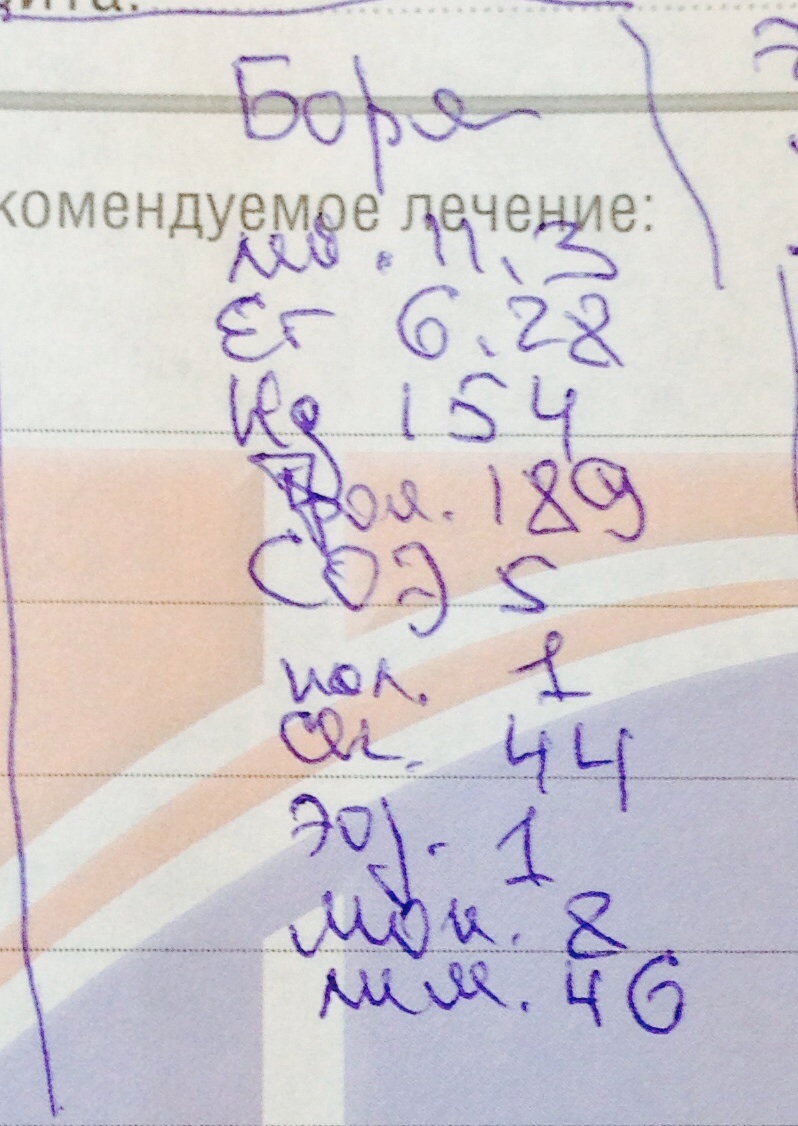 ита:
Боря
комендуемое лечение:
11.3
Er 6.28
Hg 154
189
СОЭ 5
пал. 1
сег. 44
эоз. 1
мон. 8
лим. 46